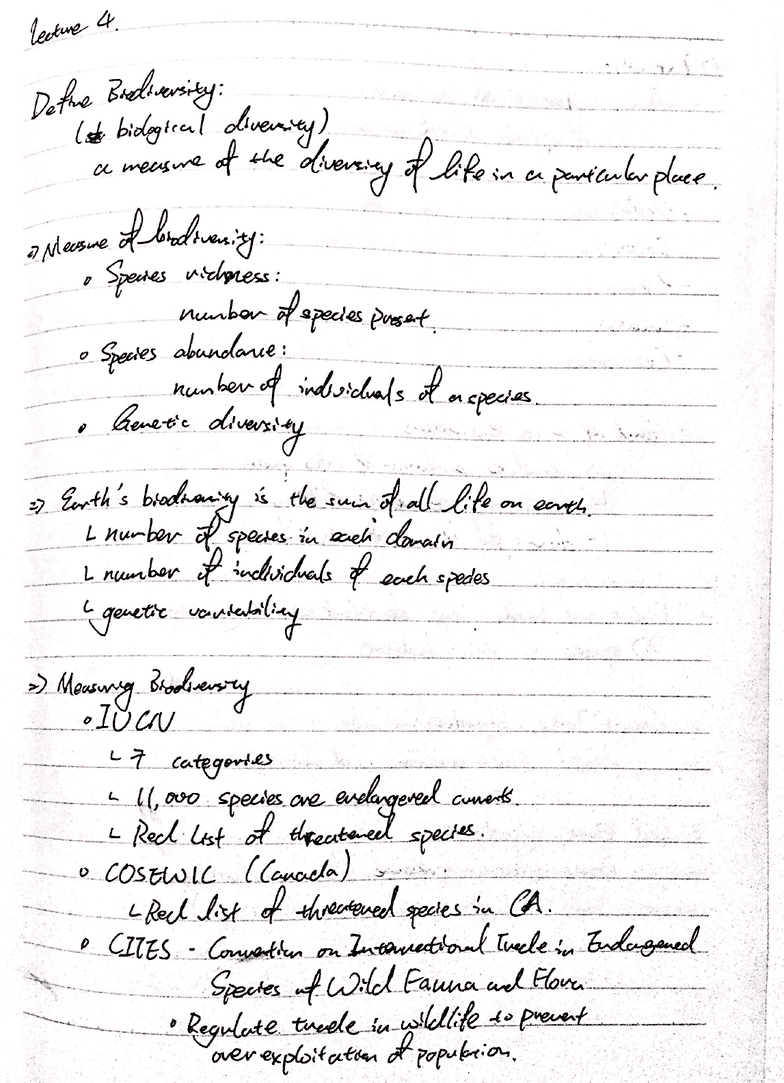 lecture 4.
Define Biodiversity:
( biological diversity)
a measure of the diversity of life in a particular place.
⇒ Measure of biodiversity:
∘ Species richness:
number of species present.
∘ Species abundance:
number of individuals of a species.
∘ Genetic diversity
⇒ Earth's biodiversity is the sum of all life on earth.
└ number of species in each domain
└ number of individuals of each species
└ genetic variability
⇒ Measuring Biodiversity
∘ IUCN
└ 7 categories
└ 11,000 species are endangered
└ Red List of threatened species.
∘ COSEWIC (Canada)
└ Red list of threatened species in CA.
∘ CITES - Convention on International Trade in Endangered
Species of Wild Fauna and Flora
• Regulate trade in wildlife to prevent
over exploitation of population.